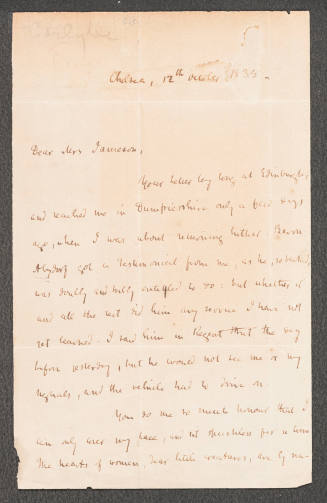 Carlyle
Chelsea, 12th October, 1835.
Dear Mrs Jameson,
Your letter lay long at Edinburgh,
and reached me in Dumfriesshire only a few days
ago, when I was about returning hither. Baron
got a testimonial from me, as he
was doubly and entitled to do: but whether it
and all the rest did him any service I have not
yet learned. I saw him in Regent Street the day
before yesterday, but he would not see me or my
signals, and the vehicle had to drive on.
You do me so much honour that I
can only my face, and sit speechless for a time
The hearts of women, dear little creatures, are by na-